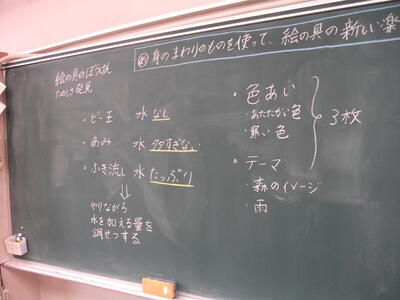 め 身のまわりのものを使って、絵の具の新しい楽
絵の具のぼうけん
たのしさ発見
・ビー玉 水 なし
・あみ 水 多すぎない
・ふき流し 水 たっぷり
⇓
やりながら
水を加える量を
調せつする。
・色あい
・あたたかい色
・寒い色
・テーマ
・森のイメージ
・雨
3枚